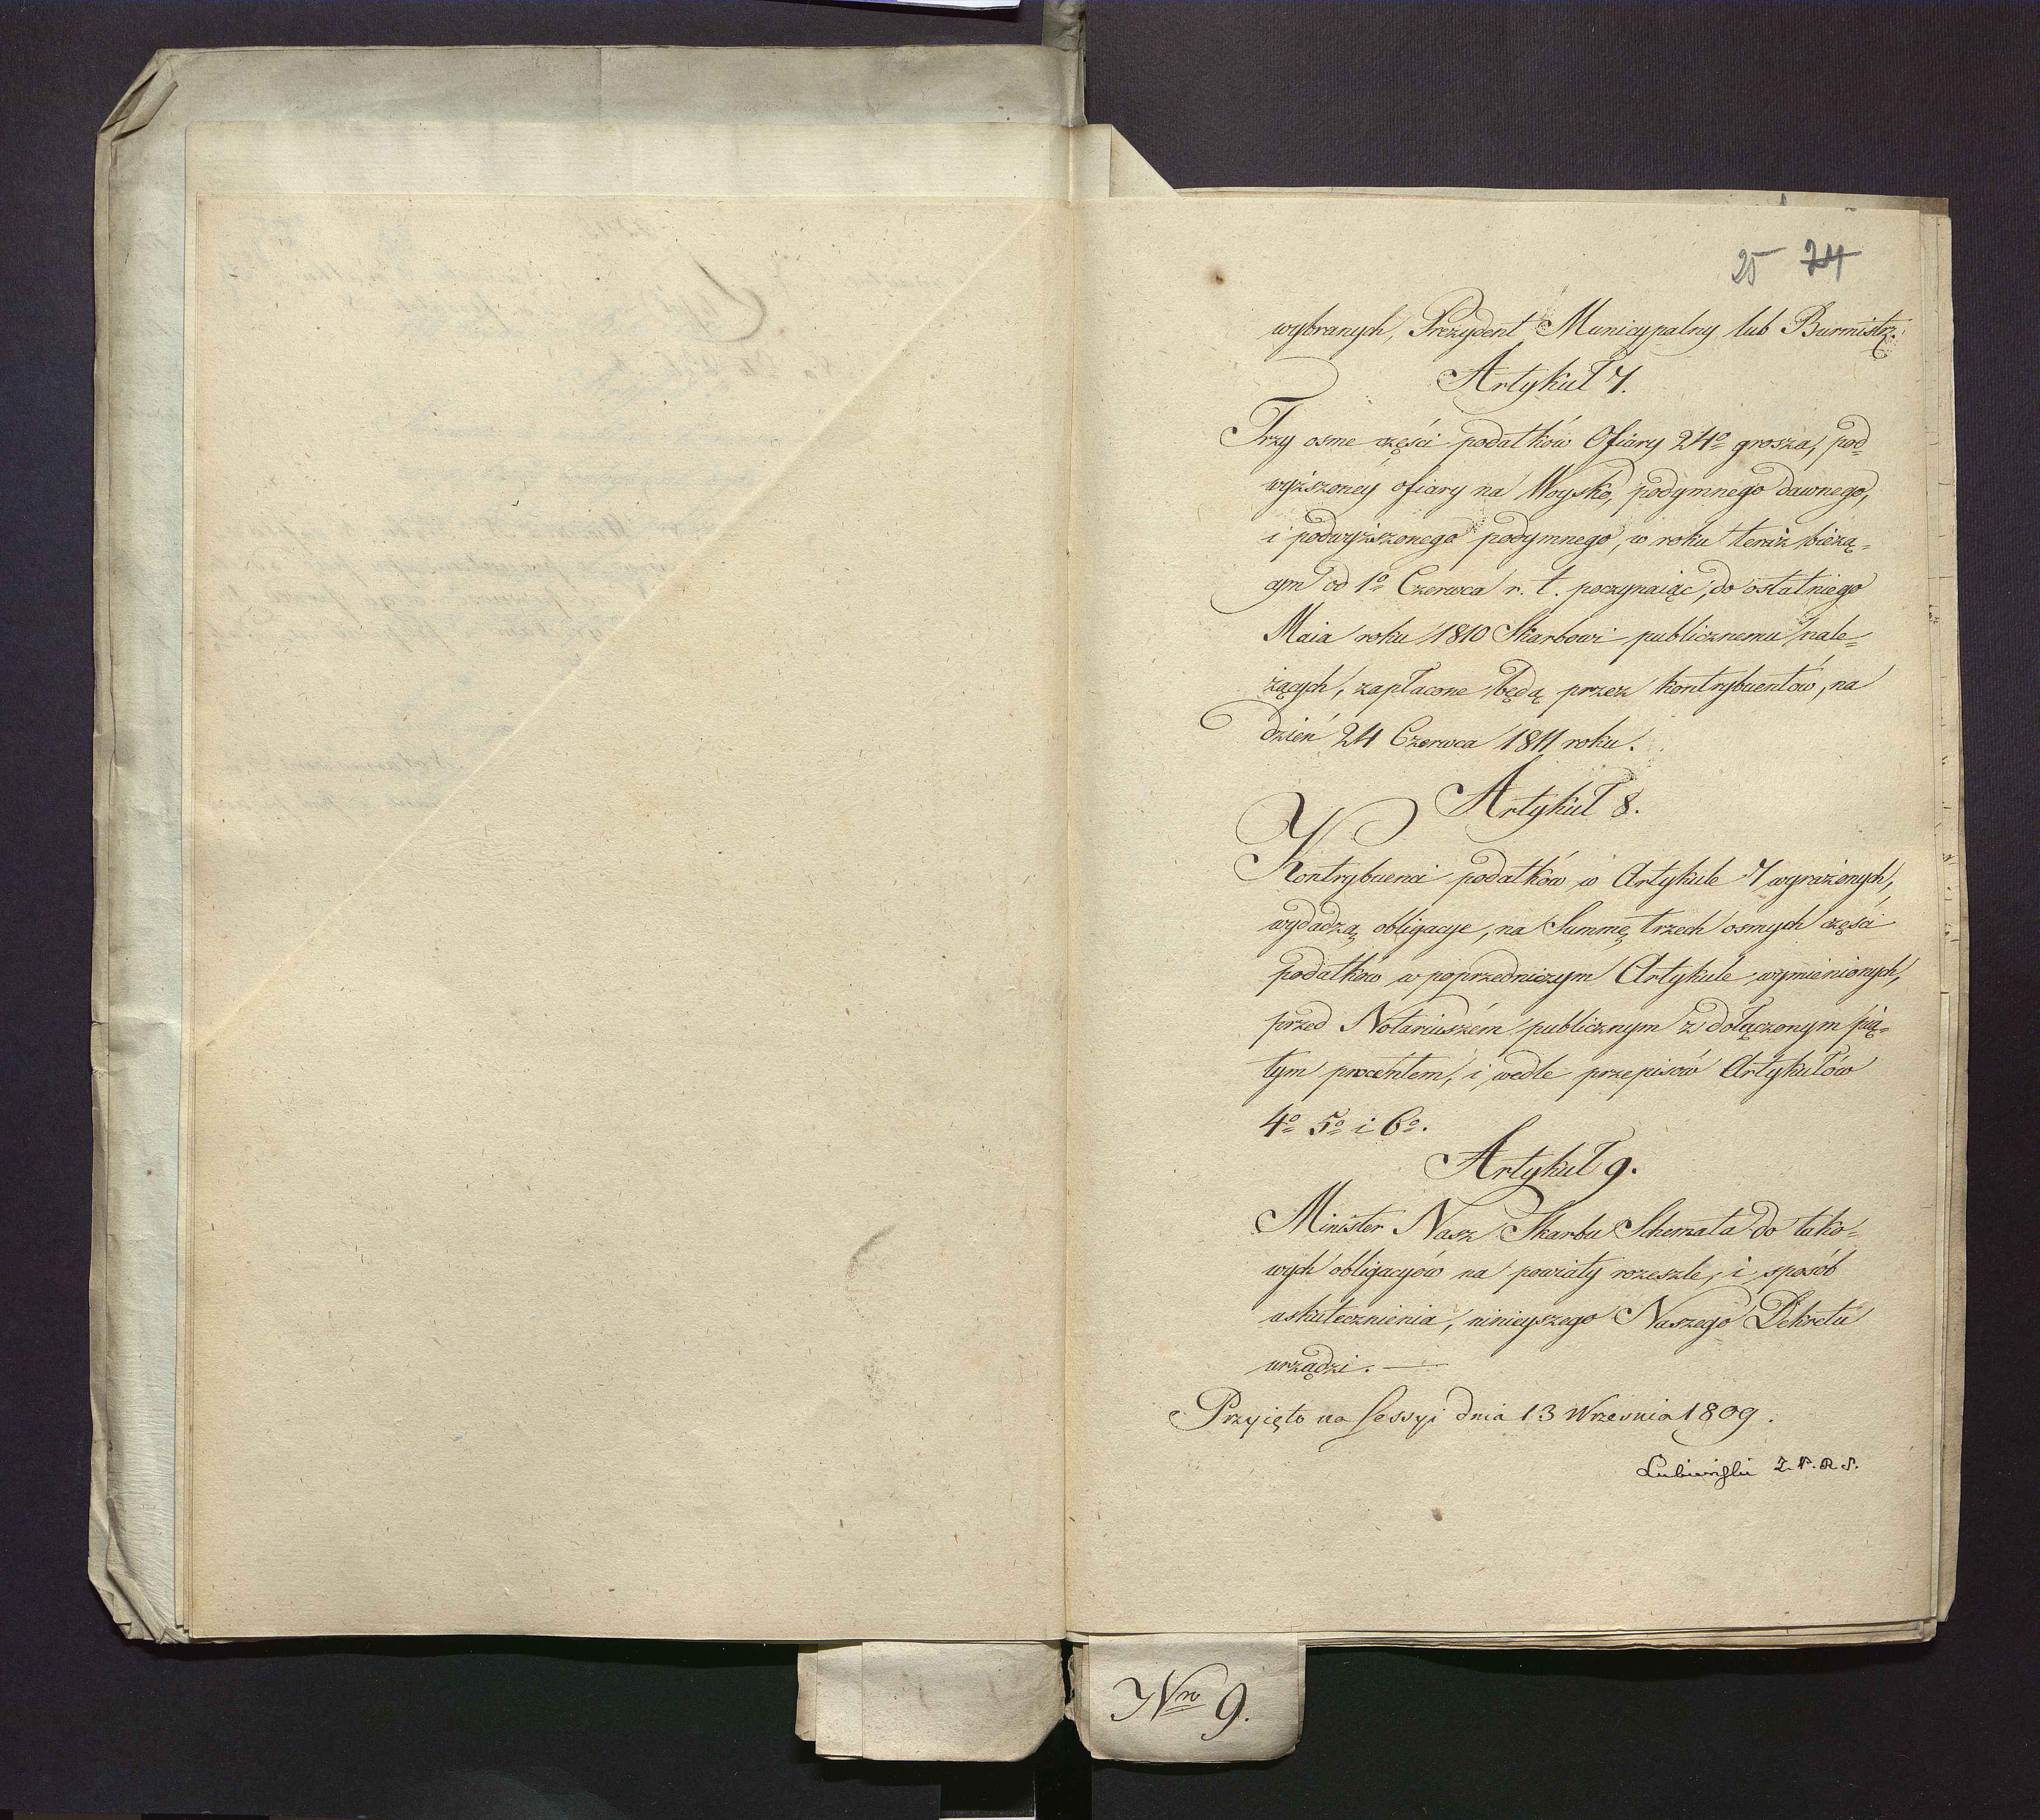 25 74
wybranych, Prezydent Municypalny lub Burmistrz.
Artykuł 7.
Trzy osme części podatków Ofiary 24º grosza, pod=
wyższoney ofiary na Woysko, podymnego dawnego,
i podwyższonego podymnego, w roku teraz bieżą=
cym od 1º Czerwca r. t. poczynaiąc, do ostatniego
Maia roku 1810 Skarbowi publicznemu nale=
żących, zapłacone będą przez kontrybuentów, na
dzień 24 Czerwca 1811 roku.
Artykuł 8.
Kontrybuenci podatków w Artykule 7 wyrażonych,
wydadzą obligacye, na Summę trzech osmych części
podatków w poprzedniczym Artykule wymienionych,
przed Notariuszem publicznym z dołączonym pią=
tym procentem, i wedle przepisów Artykułów
4º 5º i 6º.
Artykuł 9.
Minister Nasz Skarbu Schemata do tako=
wych obligacyów na powiaty rozeszle, i sposób
uskutecznienia, ninieyszego Naszego Dekretu
urządzi. —
Przyięto na Sessyi dnia 13 Września 1809.
Nro 9.